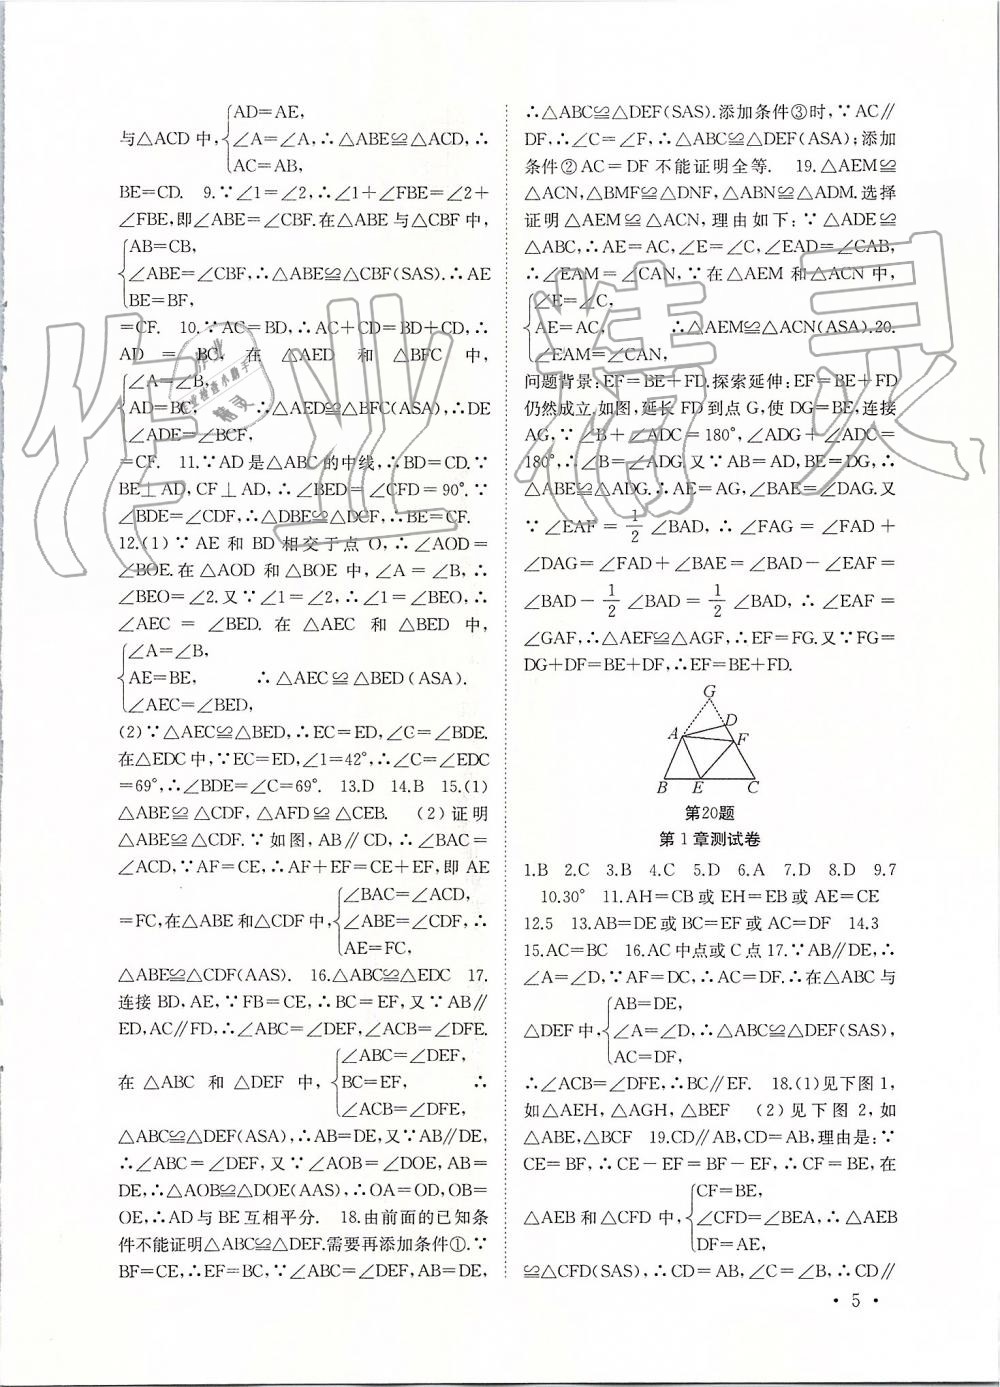 与△ACD中,{AD=AE, ∠A=∠A, AC=AB, ∴△ABE≌△ACD,∴
BE=CD. 9.∵∠1=∠2,∴∠1+∠FBE=∠2+
∠FBE,即∠ABE=∠CBF.在△ABE与△CBF中,
{AB=CB, ∠ABE=∠CBF, BE=BF, ∴△ABE≌△CBF(SAS).∴AE
=CF. 10.∵AC=BD,∴AC+CD=BD+CD,∴
AD=BC,在△AED和△BFC中,
{∠A=∠B, AD=BC, ∠ADE=∠BCF, ∴△AED≌△BFC(ASA),∴DE
=CF. 11.∵AD是△ABC的中线,∴BD=CD.∵
BE⊥AD,CF⊥AD,∴∠BED=∠CFD=90°.∵
∠BDE=∠CDF,∴△DBE≌△DCF,∴BE=CF.
12.(1)∵AE和BD相交于点O,∴∠AOD=
∠BOE.在△AOD和△BOE中,∠A=∠B,∴
∠BEO=∠2.又∵∠1=∠2,∴∠1=∠BEO,∴
∠AEC=∠BED.在△AEC和△BED中,
{∠A=∠B, AE=BE, ∠AEC=∠BED, ∴△AEC≌△BED(ASA).
(2)∵△AEC≌△BED,∴EC=ED,∠C=∠BDE.
在△EDC中,∵EC=ED,∠1=42°,∴∠C=∠EDC
=69°,∴∠BDE=∠C=69°. 13.D 14.B 15.(1)
△ABE≌△CDF,△AFD≌△CEB. (2)证明
△ABE≌△CDF.∵如图,AB∥CD,∴∠BAC=
∠ACD,∵AF=CE,∴AF+EF=CE+EF,即AE
=FC,在△ABE和△CDF中,{∠BAC=∠ACD, ∠ABE=∠CDF, AE=FC, ∴
△ABE≌△CDF(AAS). 16.△ABC≌△EDC 17.
连接BD,AE,∵FB=CE,∴BC=EF,又∵AB∥
ED,AC∥FD,∴∠ABC=∠DEF,∠ACB=∠DFE.
在△ABC和△DEF中,{∠ABC=∠DEF, BC=EF, ∠ACB=∠DFE, ∴
△ABC≌△DEF(ASA),∴AB=DE,又∵AB∥DE,
∴∠ABC=∠DEF,又∵∠AOB=∠DOE,AB=
DE,∴△AOB≌△DOE(AAS),∴OA=OD,OB=
OE,∴AD与BE互相平分. 18.由前面的已知条
件不能证明△ABC≌△DEF.需要再添加条件①.∵
BF=CE,∴EF=BC,∵∠ABC=∠DEF,AB=DE,
∴△ABC≌△DEF(SAS).添加条件③时,∵AC∥
DF,∴∠C=∠F,∴△ABC≌△DEF(ASA);添加
条件②AC=DF不能证明全等. 19.△AEM≌
△ACN,△BMF≌△DNF,△ABN≌△ADM.选择
证明△AEM≌△ACN,理由如下:∵△ADE≌
△ABC,∴AE=AC,∠E=∠C,∠EAD=∠CAB,
∴∠EAM=∠CAN,∵在△AEM和△ACN中,
{∠E=∠C, AE=AC, ∠EAM=∠CAN, ∴△AEM≌△ACN(ASA).20.
问题背景:EF=BE+FD.探索延伸:EF=BE+FD
仍然成立.如图,延长FD到点G,使DG=BE,连接
AG,∵∠B+∠ADC=180°,∠ADG+∠ADC=
180°,∴∠B=∠ADG.又∵AB=AD,BE=DG,∴
△ABE≌△ADG.∴AE=AG,∠BAE=∠DAG.又
∵∠EAF=1/2∠BAD,∴∠FAG=∠FAD+
∠DAG=∠FAD+∠BAE=∠BAD-∠EAF=
∠BAD-1/2∠BAD=1/2∠BAD,∴∠EAF=
∠GAF,∴△AEF≌△AGF,∴EF=FG.又∵FG=
DG+DF=BE+DF,∴EF=BE+FD.
G
D
A F
B E C
第20题
第1章测试卷
1.B 2.C 3.B 4.C 5.D 6.A 7.D 8.D 9.7
10.30° 11.AH=CB或EH=EB或AE=CE
12.5 13.AB=DE或BC=EF或AC=DF 14.3
15.AC=BC 16.AC中点或C点 17.∵AB∥DE,∴
∠A=∠D,∵AF=DC,∴AC=DF.∴在△ABC与
△DEF中,{AB=DE, ∠A=∠D, AC=DF, ∴△ABC≌△DEF(SAS),
∴∠ACB=∠DFE,∴BC∥EF. 18.(1)见下图1,
如△AEH,△AGH,△BEF (2)见下图2,如
△ABE,△BCF 19.CD∥AB,CD=AB,理由是:∵
CE=BF,∴CE-EF=BF-EF,∴CF=BE,在
△AEB和△CFD中,{CF=BE, ∠CFD=∠BEA, DF=AE, ∴△AEB
≌△CFD(SAS),∴CD=AB,∠C=∠B,∴CD∥
· 5 ·
作业精灵